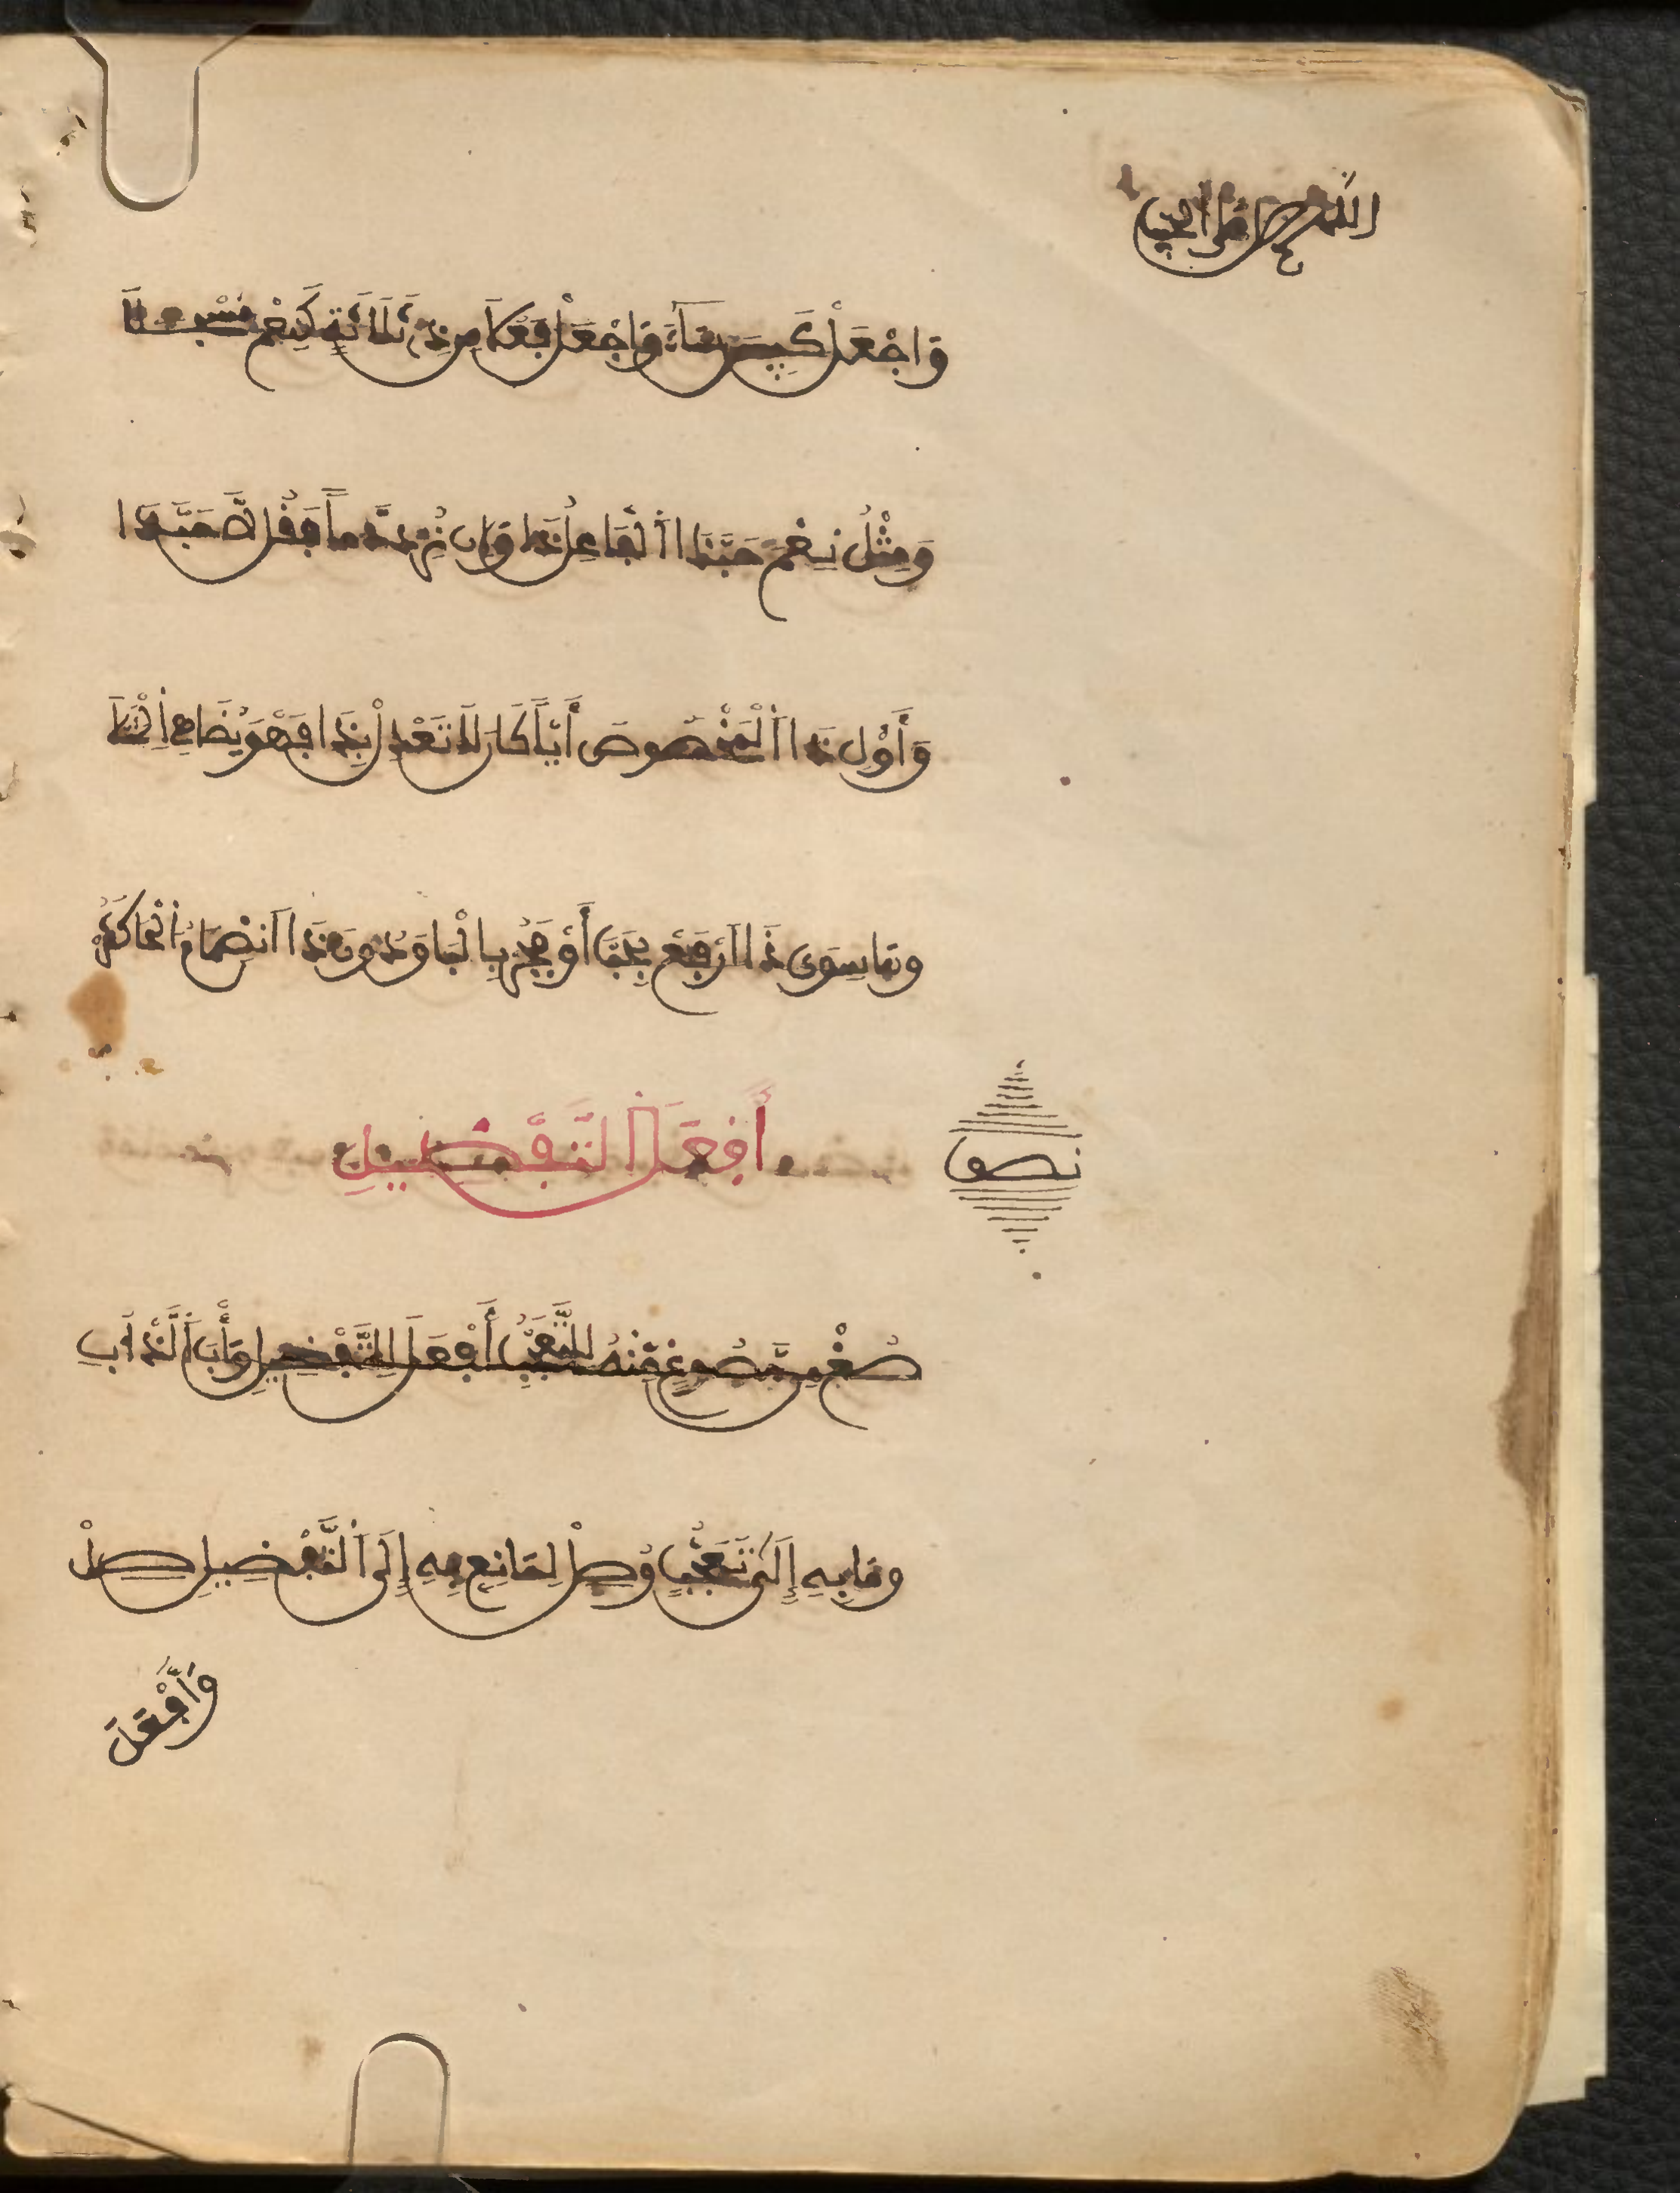 اللهم صل على الحبيب
وَاجْعَلْ كَبِيسَ سَاءَ وَاجْعَلْ فَعُلَا مِن ذِي ثَلَاثَةٍ كَنِعْمَ مُسْجَلَا
وَمِثْلُ نِعْمَ حَبَّذَا اَلْفَاعِلُ ذَا وَإِن تُرِدْ ذَمّاً فَقُل لَّا حَبَّذَا
وَأَوْلِ ذَا اَلْمَخْصُوصَ أَيّاً كَانَ لَا تَعْدِلْ بِذَا فَهْوَ يُضَاهِي اِلْمَثَلَا
وَمَا سِوَى ذَا اَرْفَعْ بِحَبَّ أَوْ فَجُرْ بِالْبَا وَدُونَ ذَا اَنضِمَامُ اَلْحَا كَثُرْ
نصف
أَفْعَلُ التَّفْضِيلِ
صُغْ مِن مَّصُوغٍ مِّنْهُ لِلتَّعَجُّبِ أَفْعَلَ لِلتَّفْضِيلِ وَأْبَ اَلَّذْ أُبِي
وَمَا بِهِ إِلَى تَعَجُّبٍ وُصِلْ لِمَانِعٍ بِهِ إِلَى اَلتَّفْضِيلِ صِلْ
وَأَفْعَلَ